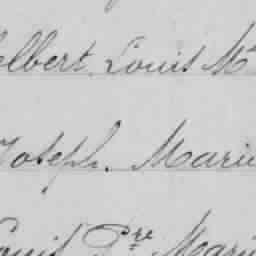 elbert Louis M
Joseph. Marie
Louis Pre Marie